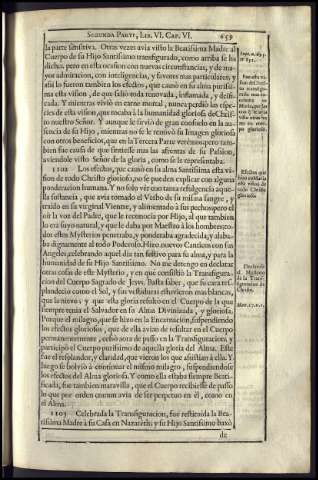 SEGUNDA PARTE, LIB. VI. CAP. VI. 659
la parte sensitiva. Otras vezes avia visto la Beatisima Madre al
Cuerpo de su Hijo Santisimo transfigurado, como arriba se ha
dicho, pero en esta ocasion con nuevas circunstancias, y de ma-
yor admiracion, con inteligencias, y favores mas particulares, y
assi lo fueron tambien los efectos, que causò en su alma purissi-
ma esta vision, de que saliò toda renovada, inflamada, y deifi-
cada. Y mientras viviò en carne mortal, nunca perdiò las espe-
cies de esta vision, que tocaba à la humanidad gloriosa de Chris-
to nuestro Señor. Y aunque le sirviò de gran consuelo en la au-
sencia de su Hijo, mientras no se le renovò su Imagen gloriosa
con otros beneficios, que en la Tercera Parte verèmos; pero tam-
bien fue causa de que sintiesse mas las afrentas de su Passion,
aviendole visto Señor de la gloria, como se le representaba.
1102 Los efectos, que causò en su alma Santissima esta vi-
sion de todo Christo glorioso, no se pueden explicar con alguna
ponderacion humana. Y no solo vèr con tanta refulgencia aque-
lla substancia, que avia tomado el Verbo de su misma sangre, y
traìdo en su virginal Vientre, y alimentado à sus pechos; pero el
oìr la voz del Padre, que le reconocia por Hijo, al que tambien
lo era suyo natural, y que le daba por Maestro à los hombres; to-
dos estos Mysterios penetraba, y ponderaba agradecida, y alaba-
ba dignamente al todo Poderoso. Hizo nuevos Canticos con sus
Angeles, celebrando aquel dia tan festivo para su alma, y para la
humanidad de su Hijo Santissimo. No me detengo en declarar
otras cosas de este Mysterio, y en que consistiò la Transfigura-
cion del Cuerpo Sagrado de Jesvs. Basta saber, que su cara res-
plandeciò como el Sol, y sus vestiduras estuvieron mas blancas,
que la nieve; y que esta gloria resultò en el Cuerpo de la que
siempre tenia el Salvador en su Alma Divinizada, y gloriosa.
Porque el milagro, que se hizo en la Encarnacion, suspendiendo
los efectos gloriosos, que de ella avian de resultar en el Cuerpo
permanentemente, cessò aora de passo en la Transfiguracion, y
participò el Cuerpo purissimo de aquella gloria del Alma. Este
fue el resplandor, y claridad, que vieron los que assistian à ella. Y
luego se bolviò à continuar el mismo milagro, suspendiendose
los efectos del Alma gloriosa. Y como ella estaba siempre Beati-
ficada, fue tambien maravilla, que el Cuerpo recibiesse de passo
lo que por orden comun avia de ser perpetuo en èl, como en
el Alma.
1103 Celebrada la Transfiguracion, fue restituìda la Bea-
tissima Madre à su Casa en Nazareth; y su Hijo Santissimo baxò
de
Efectos que
todo Christo
glorioso.
Declarase
el Mysterio
de la Trans-
figuracion de
Christo.